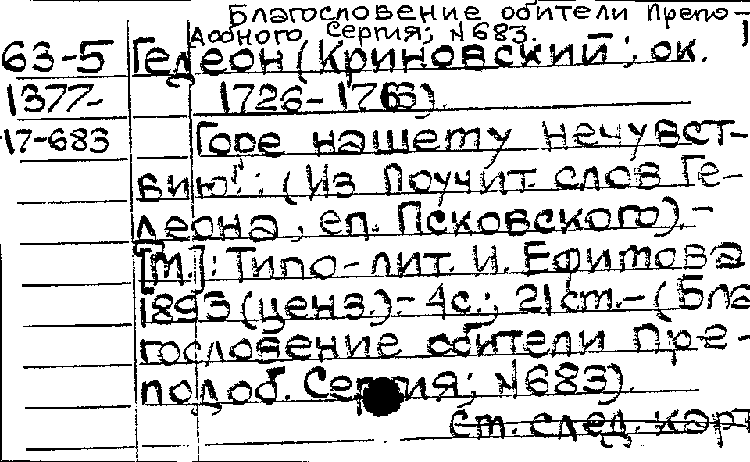 Благословение обители Препо-
добного Сергия; № 683.
63-5 Гедеон (Криновский; ок.
1377- 1726-1763).
17-683 Горе нашему нечувст-
вию!: (Из Поучит. слов Ге-
деона, еп. Псковского).-
[М.]: Типо-лит. И. Ефимова
1893 (ценз.).- 4с.; 21 см.- (Бла
гословение обители Пре-
подоб. Сергия; № 683).
См. след. карт